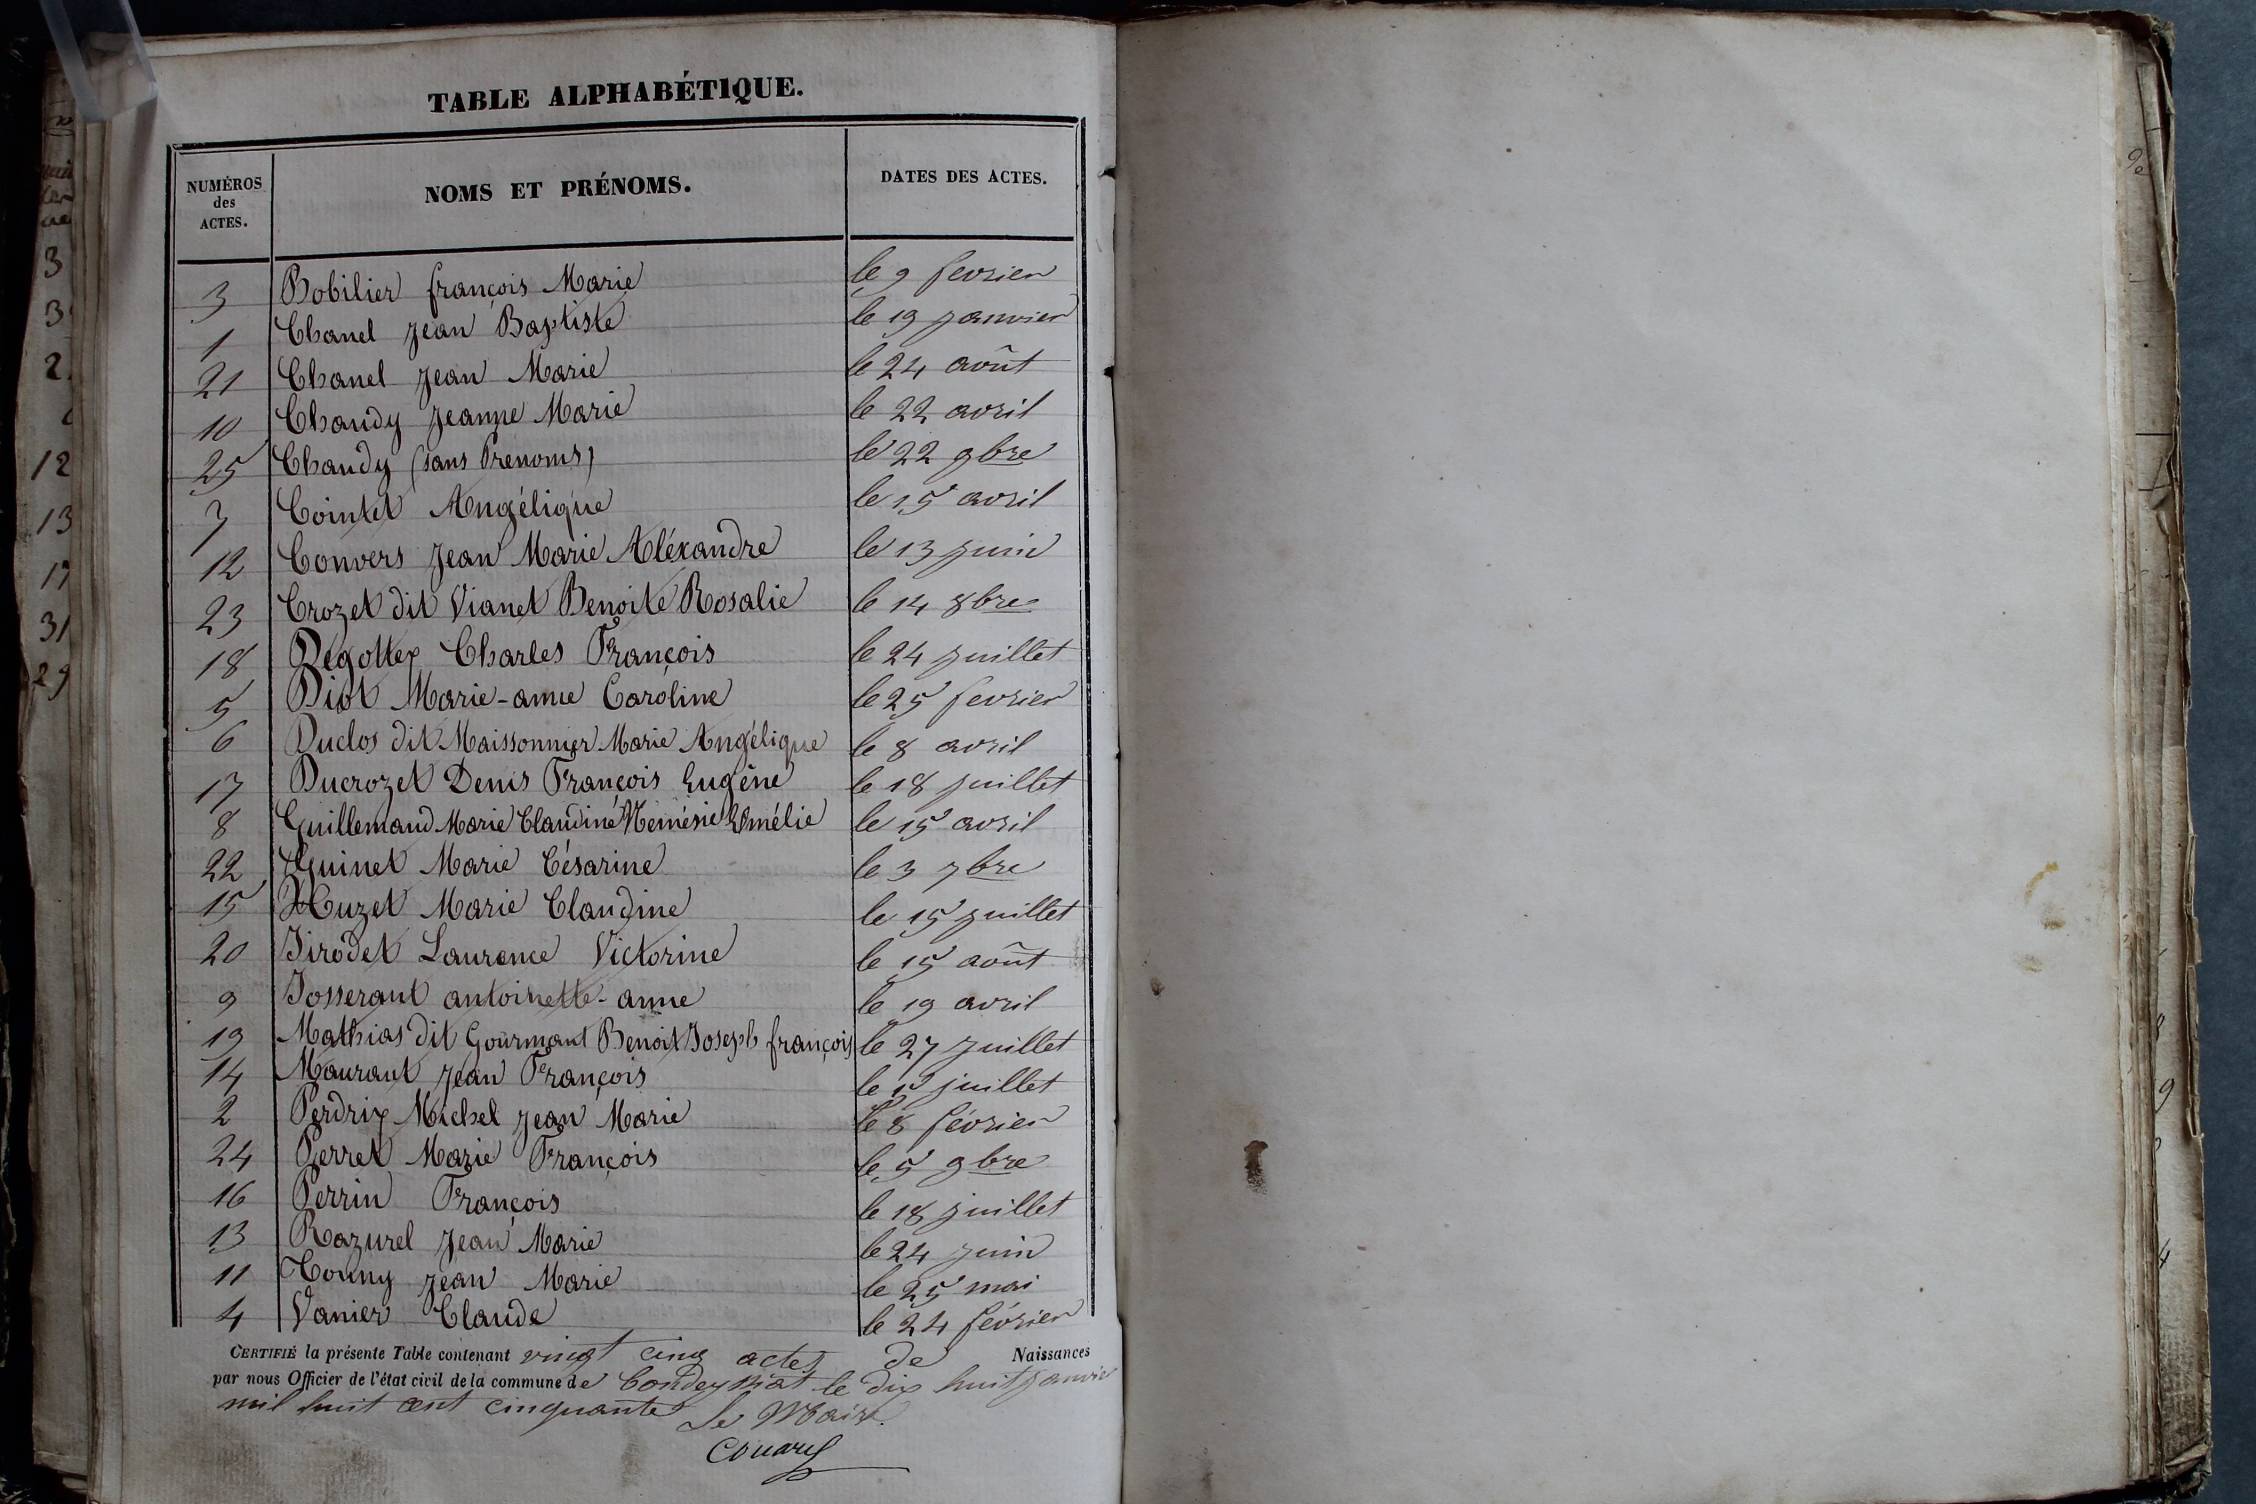 TABLE ALPHABÉTIQUE.
NUMÉROS des ACTES. NOMS ET PRÉNOMS. DATES DES ACTES.
3 Bobilier françois Marie le 9 fevrier
1 Chanel Jean Baptiste le 19 Janvier
21 Chanel Jean Marie le 24 août
10 Chaudy Jeanne Marie le 22 avril
25 Chaudy (sans Prenoms) le 22 9bre
7 Cointet Angélique le 15 avril
12 Convers Jean Marie Aléxandre le 13 juin
23 Crozet dit Vianet Benoite Rosalie le 14 8bre
18 Degottex Charles François le 24 juillet
5 Diot Marie-anne Caroline le 25 fevrier
6 Duclos dit Maissonnier Marie Angélique le 8 avril
17 Ducrozet Denis François Eugêne le 18 juillet
8 Guillemaud Marie Claudine Némésie Emélie le 15 avril
22 Guinet Marie Césarine le 3 7bre
15 Huzet Marie Claudine le 15 juillet
20 Jirodet Laurence Victorine le 15 août
9 Josserant antoinette-anne le 19 avril
19 Mathias dit Gourmant Benoit Joseph françois le 27 Juillet
14 Maurant Jean François le juillet
2 Perdrix Michel Jean Marie le 8 février
24 Perret Marie François le 5 9bre
16 Perrin François le 18 juillet
13 Razurel Jean Marie le 24 juin
11 Touny Jean Marie le 25 mai
4 Vanier Claude le 24 février
CERTIFIÉ la présente Table contenant vingt cinq actes de Naissances
par nous Officier de l'état civil de la commune de Condeyssiat le dix huit janvier
mil huit cent cinquante Le Maire
3
3
2
12
13
17
31
29